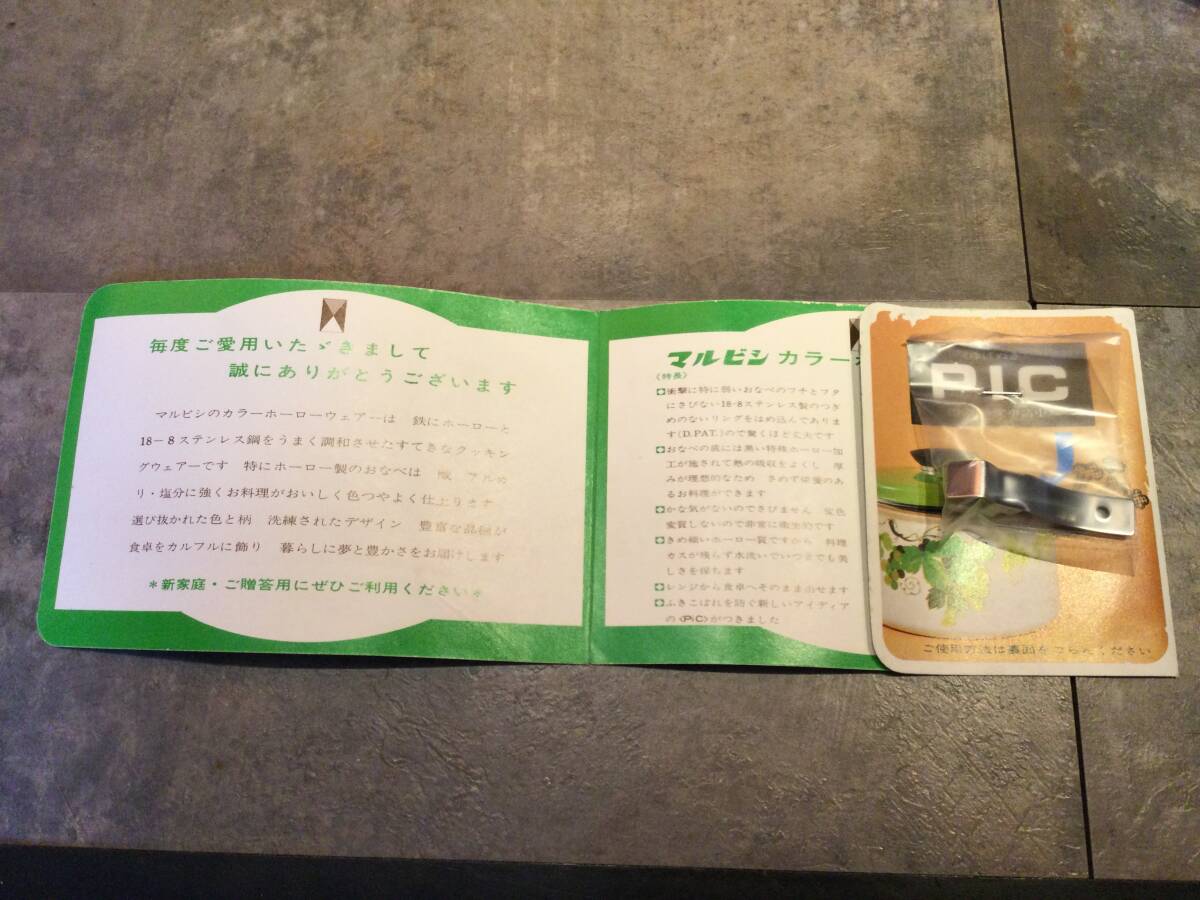 毎度ご愛用いたゞきまして
誠にありがとうございます
マルビシのカラーホーローウェアーは 鉄にホーローと
18-8ステンレス鋼をうまく調和させたすてきなクッキン
グウェアーです 特にホーロー製のおなべは 酸 アルカ
リ・塩分に強くお料理がおいしく色つやよく仕上ります
選び抜かれた色と柄 洗練されたデザイン 豊富な品種が
食卓をカルフルに飾り 暮らしに夢と豊かさをお届けします
*新家庭・ご贈答用にぜひご利用ください*
マルビシ カラー
〈特長〉
衝撃に特に弱いおなべのフチとフタ
にさびない18-8ステンレス製のつぎ
めのないリングをはめ込んでありま
す(D.PAT.)ので驚くほど丈夫です
おなべの底には黒い特殊ホーロー加
工が施されて熱の吸収をよくし 厚
みが理想的なため きめて栄養のあ
るお料理ができます
かな気がないのでさびません 変色
変質しないので非常に衛生的です
きめ細いホーロー質ですから 料理
カスが残らず水洗いでいつまでも美
しさを保ちます
レンジから食卓へそのまま出せます
ふきこぼれを防ぐ新しいアイディア
の〈PiC〉がつきました
PIC
ご使用方法は裏面をごらんください